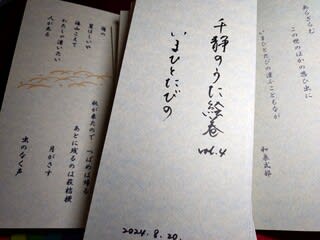 あらざらむ
この世のほかの思ひ出に
いまひとたびの逢ふこともがな
和泉式部
千静のうた絵巻 vol.4
いまひとたびの
2024.8.20.
翼ほしいや
海山こえて
わたしの逢いたい
人がある
秋が来たので
つばめは帰る
あとに残るのは萩桔梗
月がさす
虫のなく声